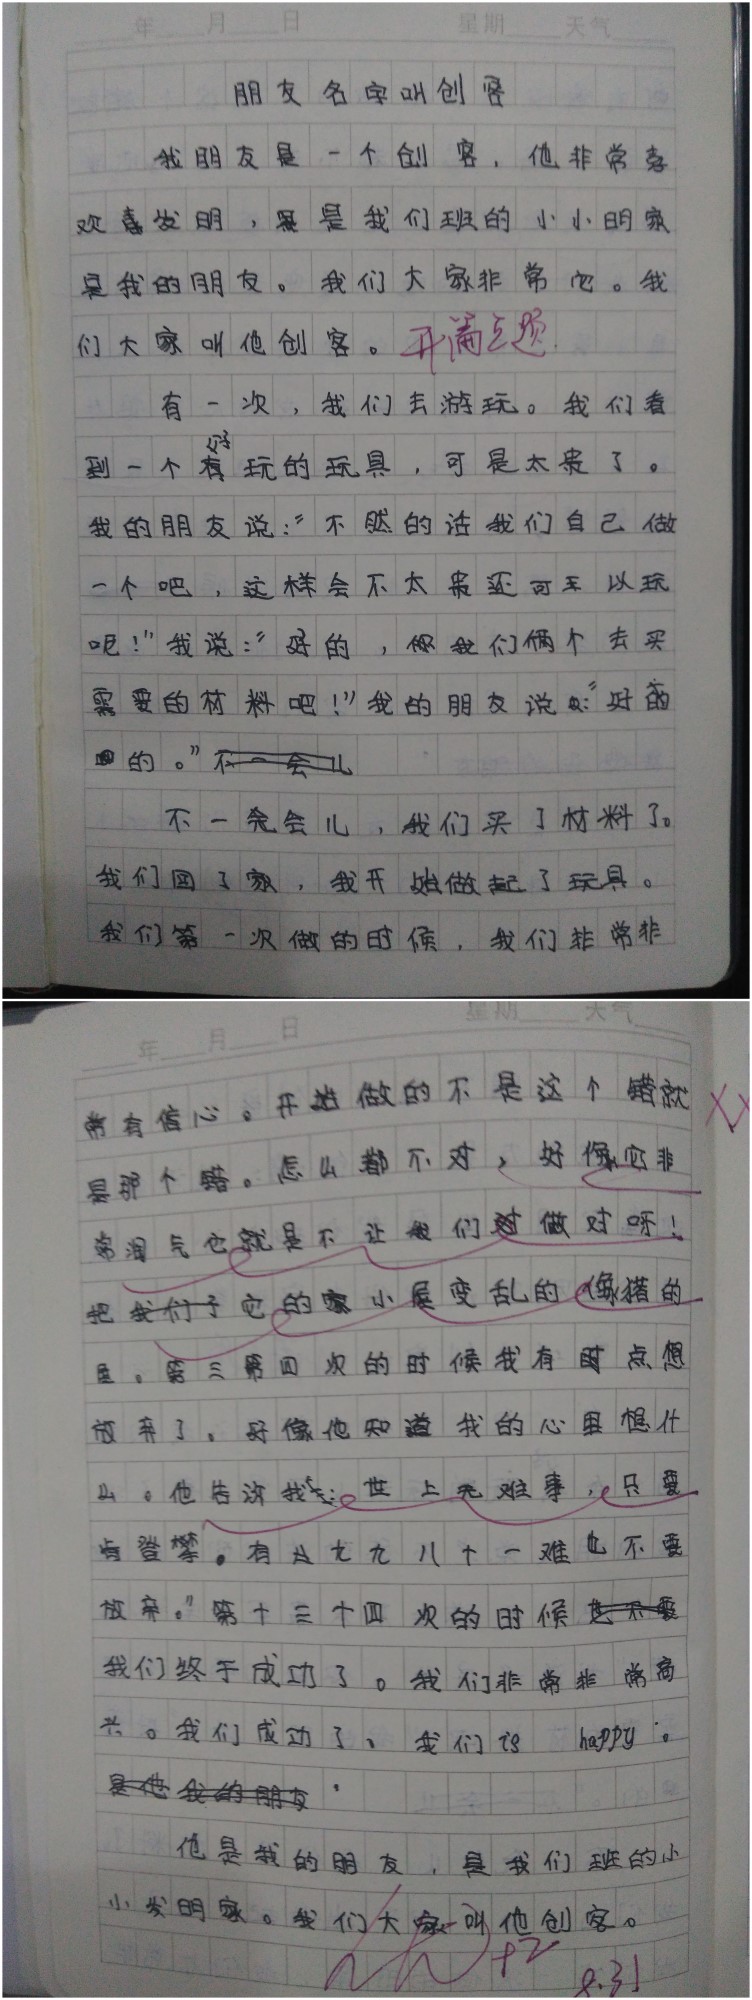 年 月 日 星期 天气
朋友名字叫创客
我朋友是一个创客，他非常喜
欢喜发明，是我们班的小小明家
是我的朋友。我们大家非常它。我
们大家叫他创客。开篇点题
有一次，我们去游玩。我们看
到一个好玩的玩具，可是太贵了。
我的朋友说：“不然的话我们自己做
一个吧，这样会不太贵还可以玩
呢！”我说：“好的，我们俩个去买
需要的材料吧！”我的朋友说：“好
的。”
不一会儿，我们买了材料了。
我们回了家，我开始做起了玩具。
我们第一次做的时候，我们非常非
年 月 日 星期 天气
常有信心。开始做的不是这个错就
是那个错。怎么都不对，好像它非
常淘气也就是不让我们做对呀！
把它的家小屋变乱的像猪的
第三第四次的时候我有点想
放弃了。好像他知道我的心里想什
么。他告诉我：世上无难事，只要
肯登攀。有九九八十一难也不要
放弃。”第十三十四次的时候
我们终于成功了。我们非常非常高
兴。我们成功了、我们is happy。
他是我的朋友，是我们班的小
小发明家。我们大家叫他创客。
+2
8.31